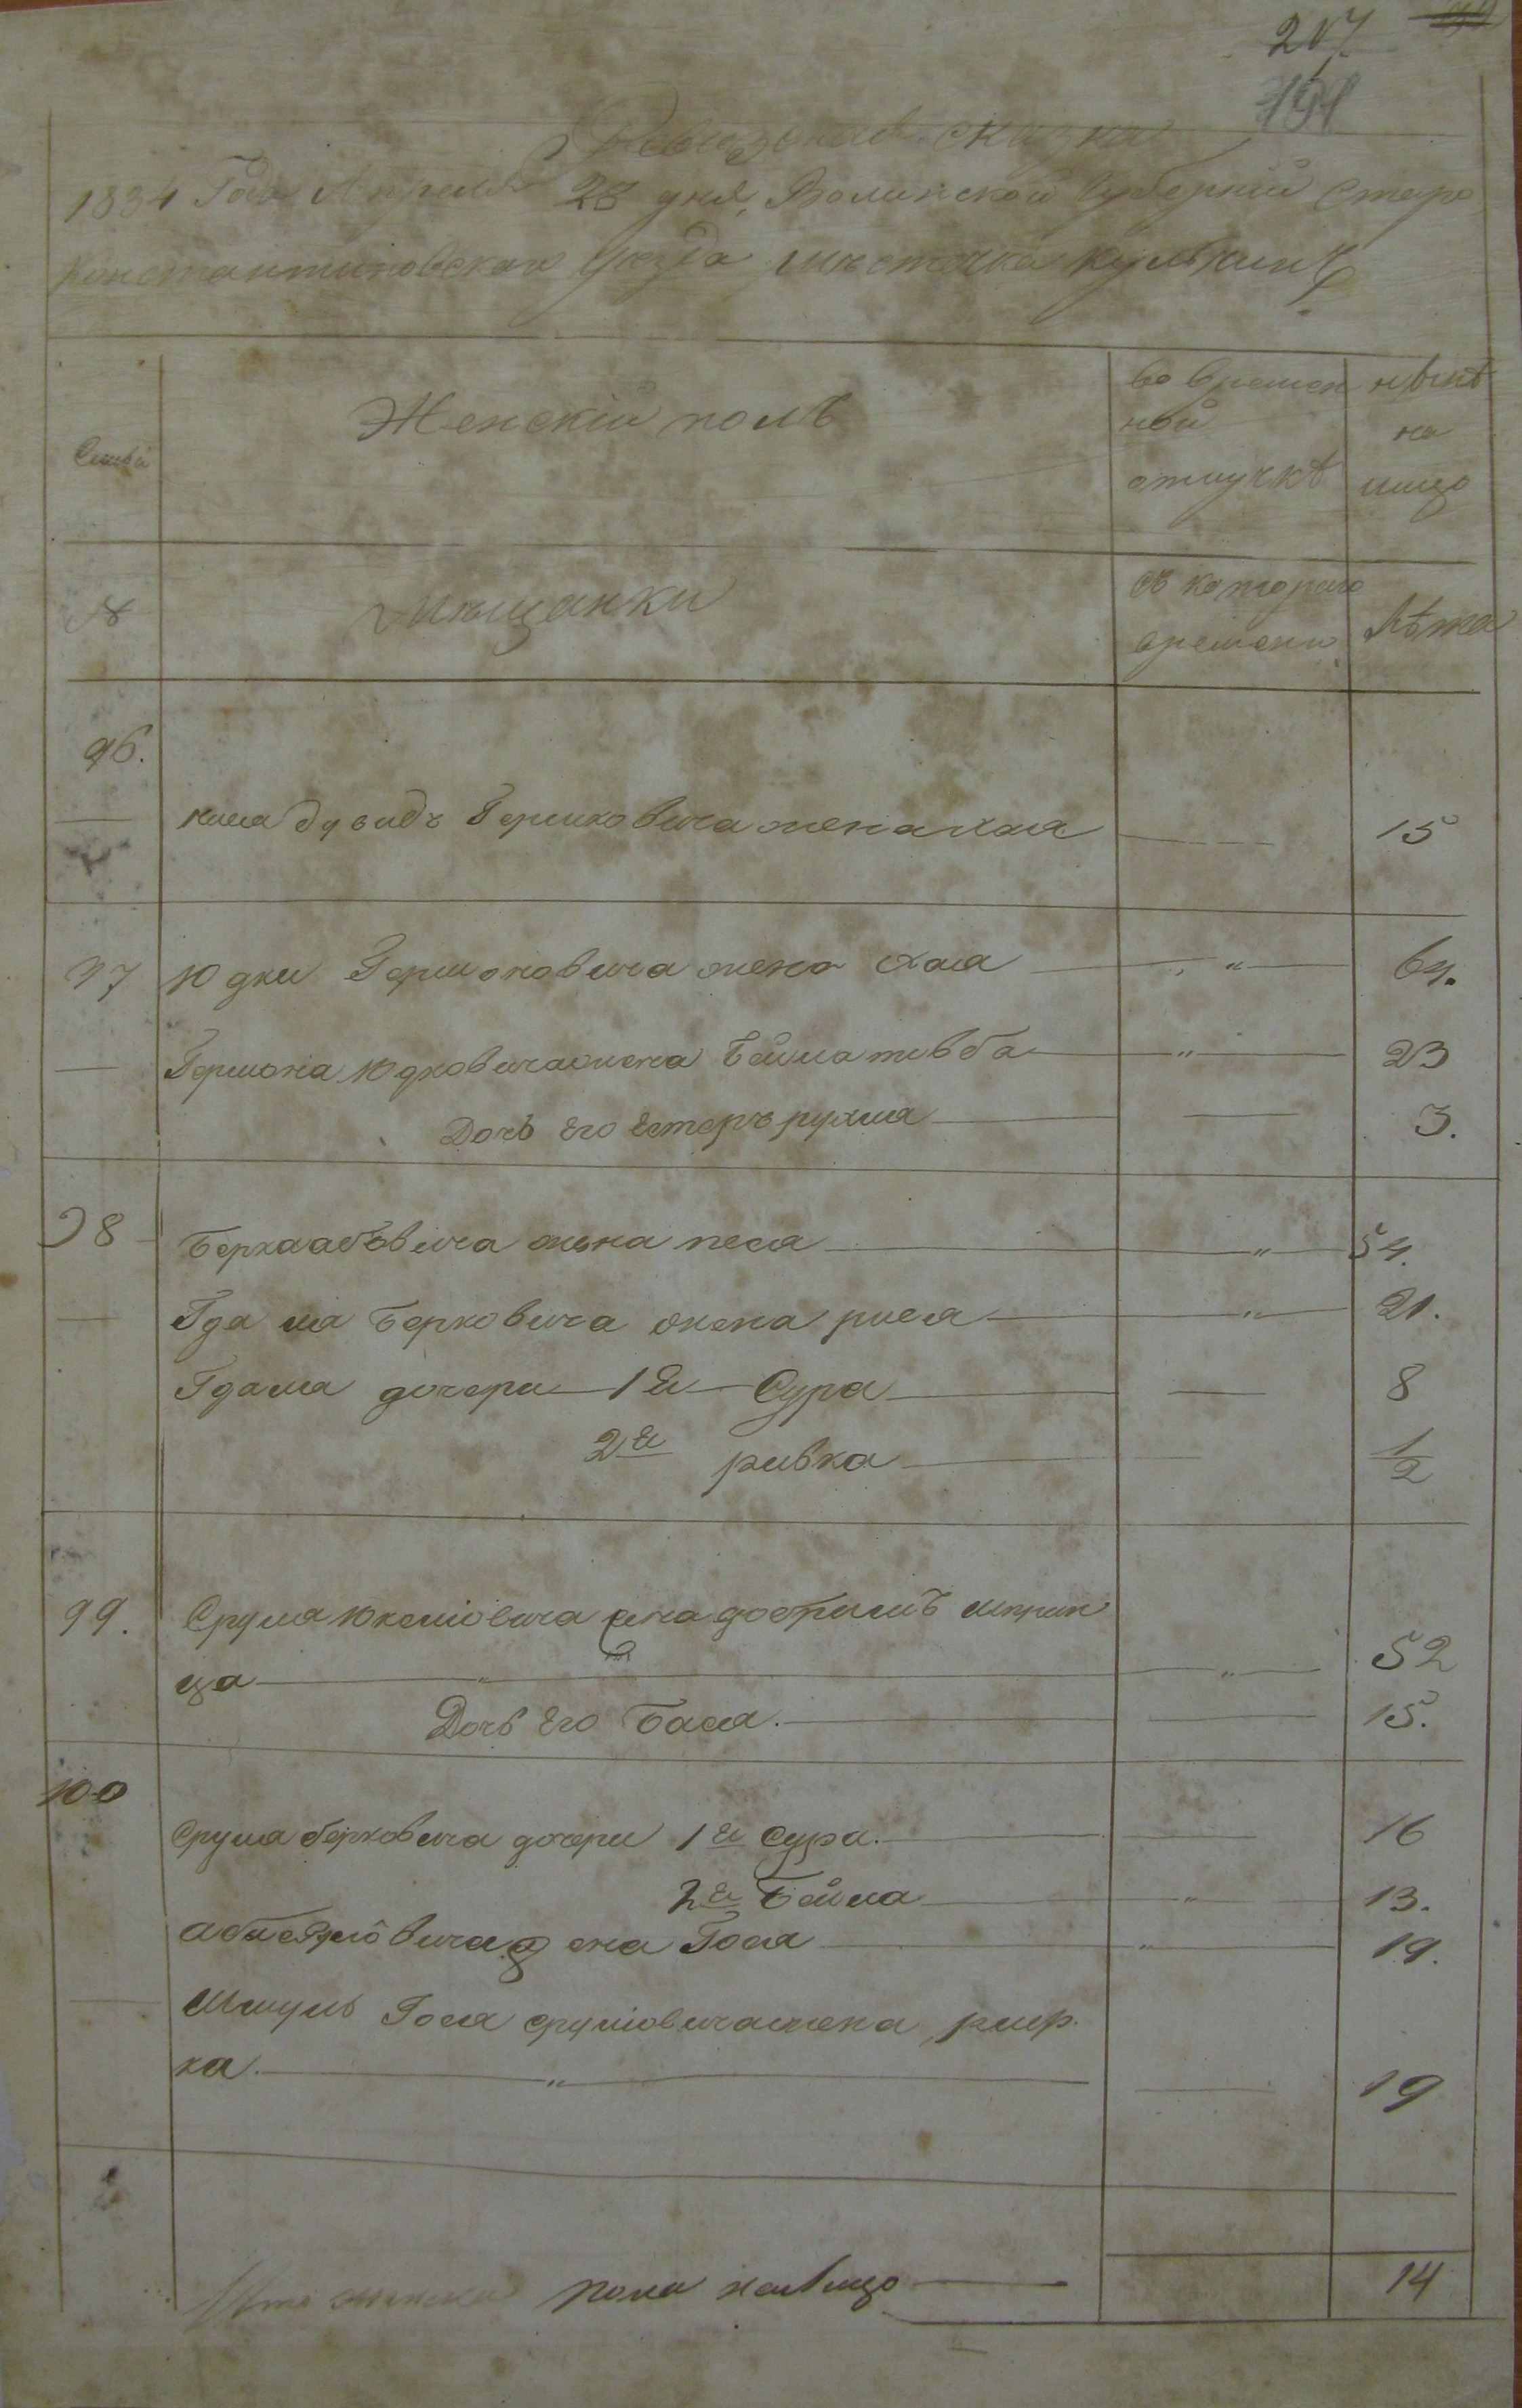 207
191
Ревизская сказка
1834 Года Апреля 28 дня, Волинской Губерніи Старо
Константиновскаго уезда местечка Кульчин
Семьи
Женскій полъ
во времен
ной
отлучкѣ
нынѣ
на
лицо
№
мещанки
съ котораго
времени
лѣта
96.
Дувидъ Гершковича жена хая 15
97 Юдки Гершоновича жена хая " 64.
Гершона Юдковича жена Бейла тивба " 23
Дочь Его Естеръ рухля 3.
98 Берка абовича жена песя " 54.
Гдаля Берковича жена рися " 21.
Гдаля дочери 1я Сура 8
2я ривка 1/2
99. Сруля Юкелiовича жена шприн
ца " " 52
Дочь Его Бася. 15.
100
Сруля берковича дочери 1я Сура. 16
2я Бейла " 13.
жена Гося " 19.
Шмуль сруліовича жена рифь
ка. " 19
Итого женска пола налицо 14